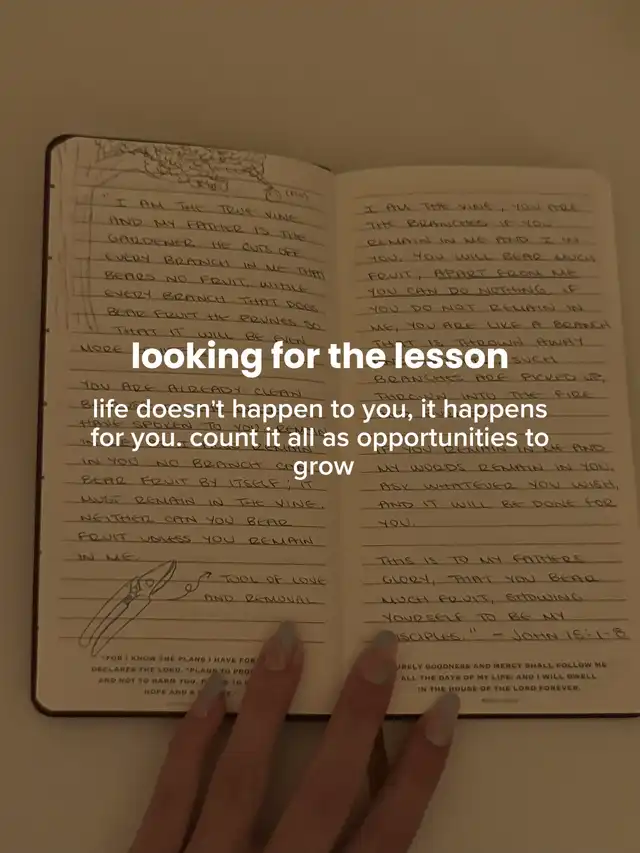 "I AM THE TRUE VINE
AND MY FATHER IS THE
GARDENER. HE CUTS OFF
EVERY BRANCH IN ME THAT
BEARS NO FRUIT, WHILE
EVERY BRANCH THAT DOES
BEAR FRUIT HE PRUNES SO
THAT IT WILL BE EVEN
MORE
YOU ARE ALREADY CLEAN
HAVE SPOKEN TO YOU. REMAIN
IN YOU. NO BRANCH
BEAR FRUIT BY ITSELF; IT
MUST REMAIN IN THE VINE.
NEITHER CAN YOU BEAR
FRUIT UNLESS YOU REMAIN
IN ME.
TOOL OF LOVE
AND REMOVAL
"FOR I KNOW THE PLANS I HAVE FOR
DECLARES THE LORD, "PLANS TO
AND NOT TO HARM YOU,
HOPE AND A
I AM THE VINE, YOU ARE
THE BRANCHES IF YOU
REMAIN IN ME AND I IN
YOU, YOU WILL BEAR MUCH
FRUIT, APART FROM ME
YOU CAN DO NOTHING. IF
YOU DO NOT REMAIN IN
ME, YOU ARE LIKE A BRANCH
THAT IS THROWN AWAY
SUCH
BRANCHES ARE PICKED UP,
THROWN INTO THE FIRE
IF YOU REMAIN IN ME AND
MY WORDS REMAIN IN YOU,
ASK WHATEVER YOU WISH,
AND IT WILL BE DONE FOR
YOU.
THIS IS TO MY FATHERS
GLORY, THAT YOU BEAR
MUCH FRUIT, SHOWING
YOURSELF TO BE MY
DISCIPLES." - JOHN 15:1-8
SURELY GOODNESS AND MERCY SHALL FOLLOW ME
ALL THE DAYS OF MY LIFE: AND I WILL DWELL
IN THE HOUSE OF THE LORD FOREVER.
looking for the lesson
life doesn't happen to you, it happens
for you. count it all as opportunities to
grow